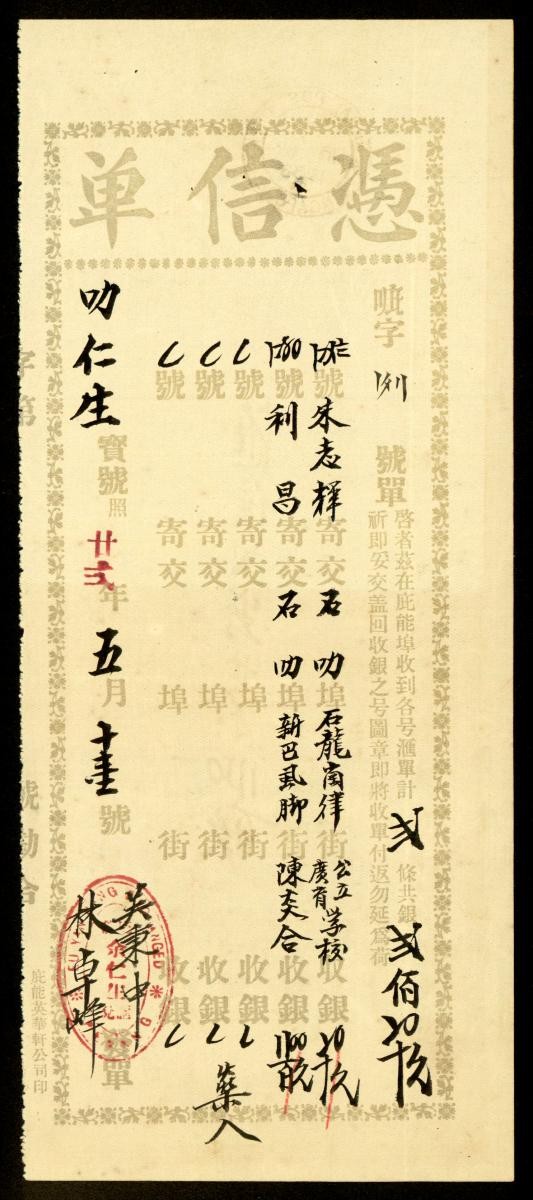 憑信单
㕭字 號單
啓者茲在庇能埠收到各号滙單計 弍 條共銀 弍佰
祈即妥交盖回收銀之号圖章即將收單付返勿延為荷
號 朱志輝 寄交 石叻 埠 石龍崗律 街 公立廣育学校 收銀
號 利昌 寄交 石叻 埠 新巴虱脚 街 陳炎合 收銀
號 寄交 埠 街 收銀
號 寄交 埠 街 收銀
號 寄交 埠 街 收銀
叻仁生 寶號照 廿弍年 五月 十 號 單
吴秉中
林卓峰
余仁生
字第 號勘合
庇能英華軒公司印